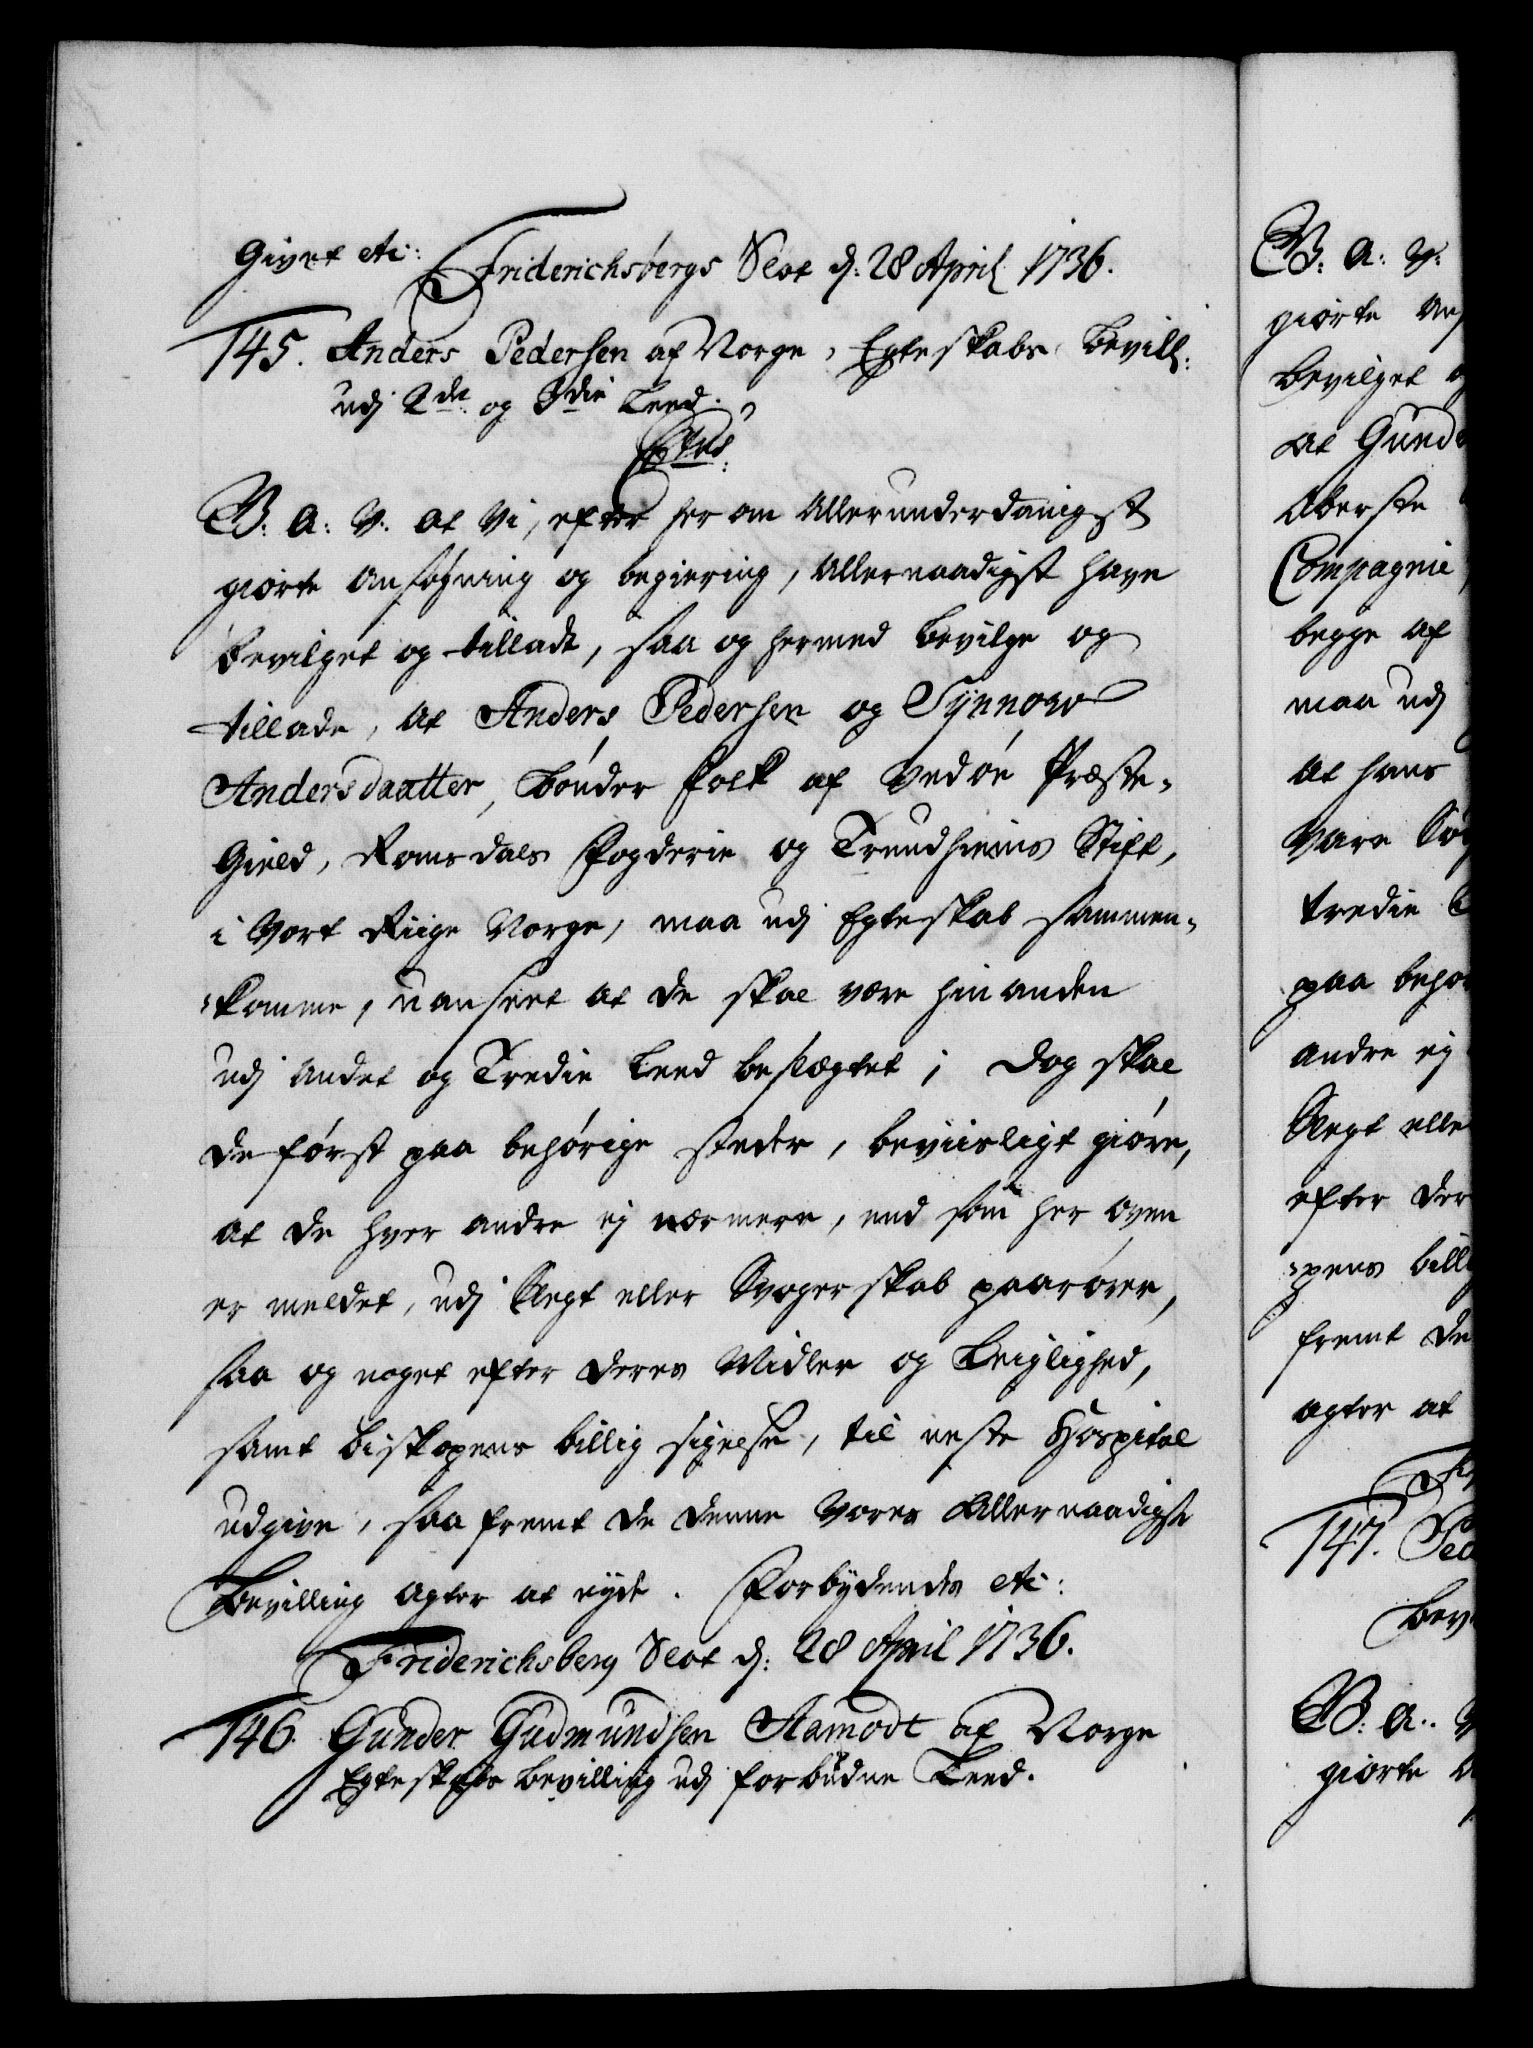 Givet etc:
Friderichsbergs Slot d: 28 April 1736.
145. Anders Pedersen af Norge, Egteskabs Bevill:
udj 2den og 3die Leed.
G: A: V: at Vi, efter her om Allerunderdanigst
giorte Ansøgning og begiering, Allernaadigst have
bevilget og tilladt, saa og hermed bevilge og
tillade, at Anders Pedersen og Synnove
Andersdaatter, bønder folk af Vedøe Præste-
Gield, Romsdals Fogderie og Trundhiems Stift,
i Vort Riige Norge, maa udj Egteskab sammen-
komme, uanseet at de skal være hinanden
udj andet og Tredie Leed beslægtet; Dog skal
de først paa behørige steder, beviisligt giøre,
at de hver andre ej nærmere, end som her oven
er meldet, udj Slegt eller Svogerskab paarører,
saa og noget efter deres Midler og Leiglighed,
samt Biskopens billig sigelse, til neste Hospital
udgive, saafremt de denne Vores Allernaadigste
Bevilling agter at nyde. Forbydendes etc:
Friderichsberg Slot d: 28 April 1736.
146. Gunder Gudmundsen Aamodt af Norge
Egteskabs bevilling udj forbudne Leed.
G: A: V:
giorte Ans
bevilget o
at Gunde
Oberste
Compagnie
begge af
maa udj
at hans
være
tredie
paa behø
andre ej
Slegt elle
efter der
pens bill
fremt de
agter at
147. Ped
Bev
G: A: V
giorte